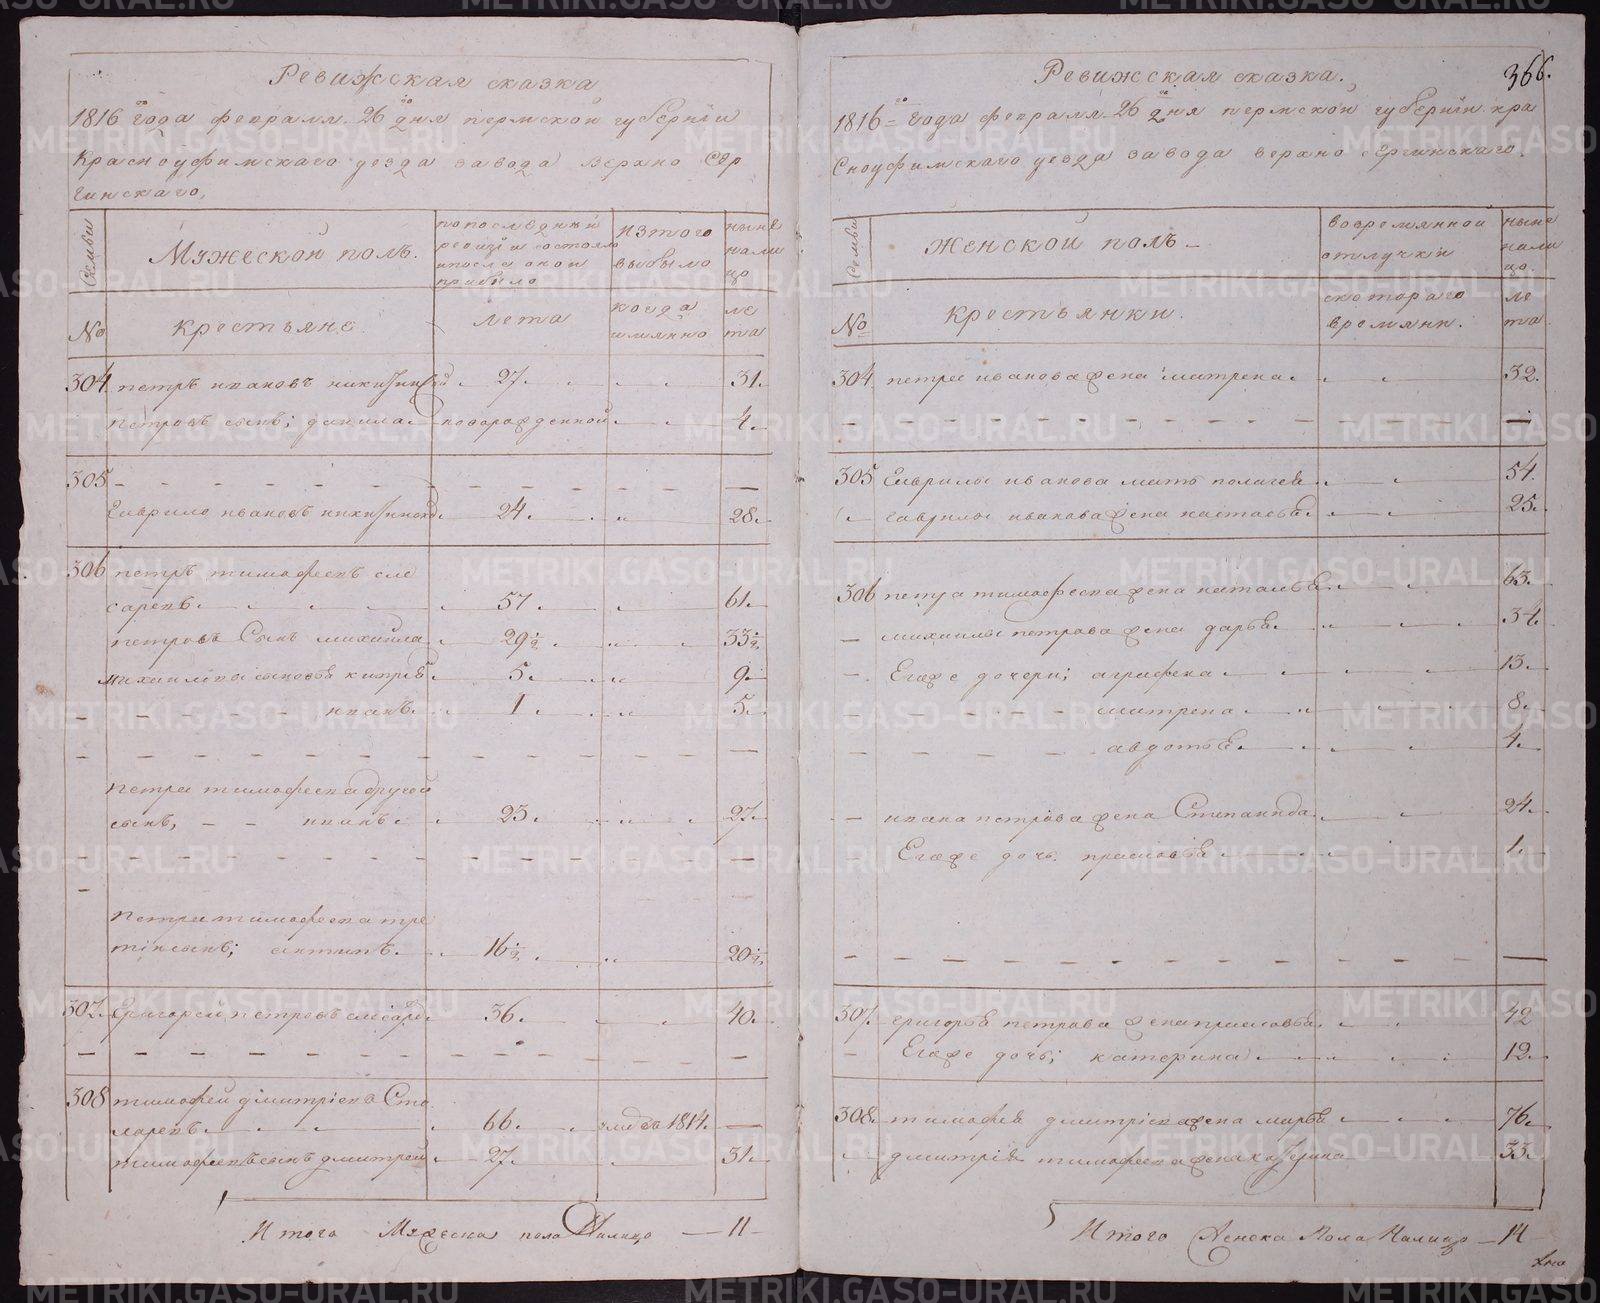 Ревижская сказка
1816 года февраля 26 дня пермской губернии
Красноуфимскаго уезда завода Верхно Сер
гинскаго,
Семьи
Мужеской полъ.
попоследней
ревизии состояло
ипосле оной
прибыло
изтого
выбыло
ныне
нали
цо
№
крестьяне
лета
когда
имянно
ле
та
304 петръ ивановъ 27. 31.
Петровъ сынъ; данила новорожденной 4.
305
гаврило ивановъ 24. 28.
306 петръ тимофеевъ сле
саревъ. 57. 61.
петровъ Сынъ михайла 29½ 33½
михайловы сыновья 5. 9.
иванъ 1. 5.
петра тимофеева другой
сынъ, иванъ 23. 27.
петра тимофеева тре
тий сынъ; антипъ. 16½ 20½
307. Григорей петровъ 36. 40.
308 тимофей дмитриевъ Сто
ляревъ 66. 1814.
тимофеевъ сынъ дмитрей 27. 31.
Итого Мужеска пола Налицо 11
Ревижская сказка.
366.
1816 года февраля 26 дня пермской губернии кра
сноуфимскаго уезда завода верхно сергинскаго.
Семьи
Женской полъ
вовремянной
отлучки
ныне
нали
цо.
№
крестьянки.
скотораго
времяни.
ле
та
304. петра иванова жена матрена 32.
305 Гаврилы иванова мать 54.
гаврилы иванова жена настасья 25.
306 петра тимофеева жена наталья 63.
михаилы петрова жена дарья 34.
Егоже дочери; аграфена 13.
матрена 8.
авдотья 4.
ивана петрова жена Степанида 24.
Егоже дочь прасковья 1.
307. григорья петрова жена прасковья 42
Егоже дочь; катерина 12.
308. тимофея дмитриева жена марья 76.
дмитрия тимофеева жена 33.
Итого Женска Пола Налицо 14
METRIKI.GASO-URAL.RU